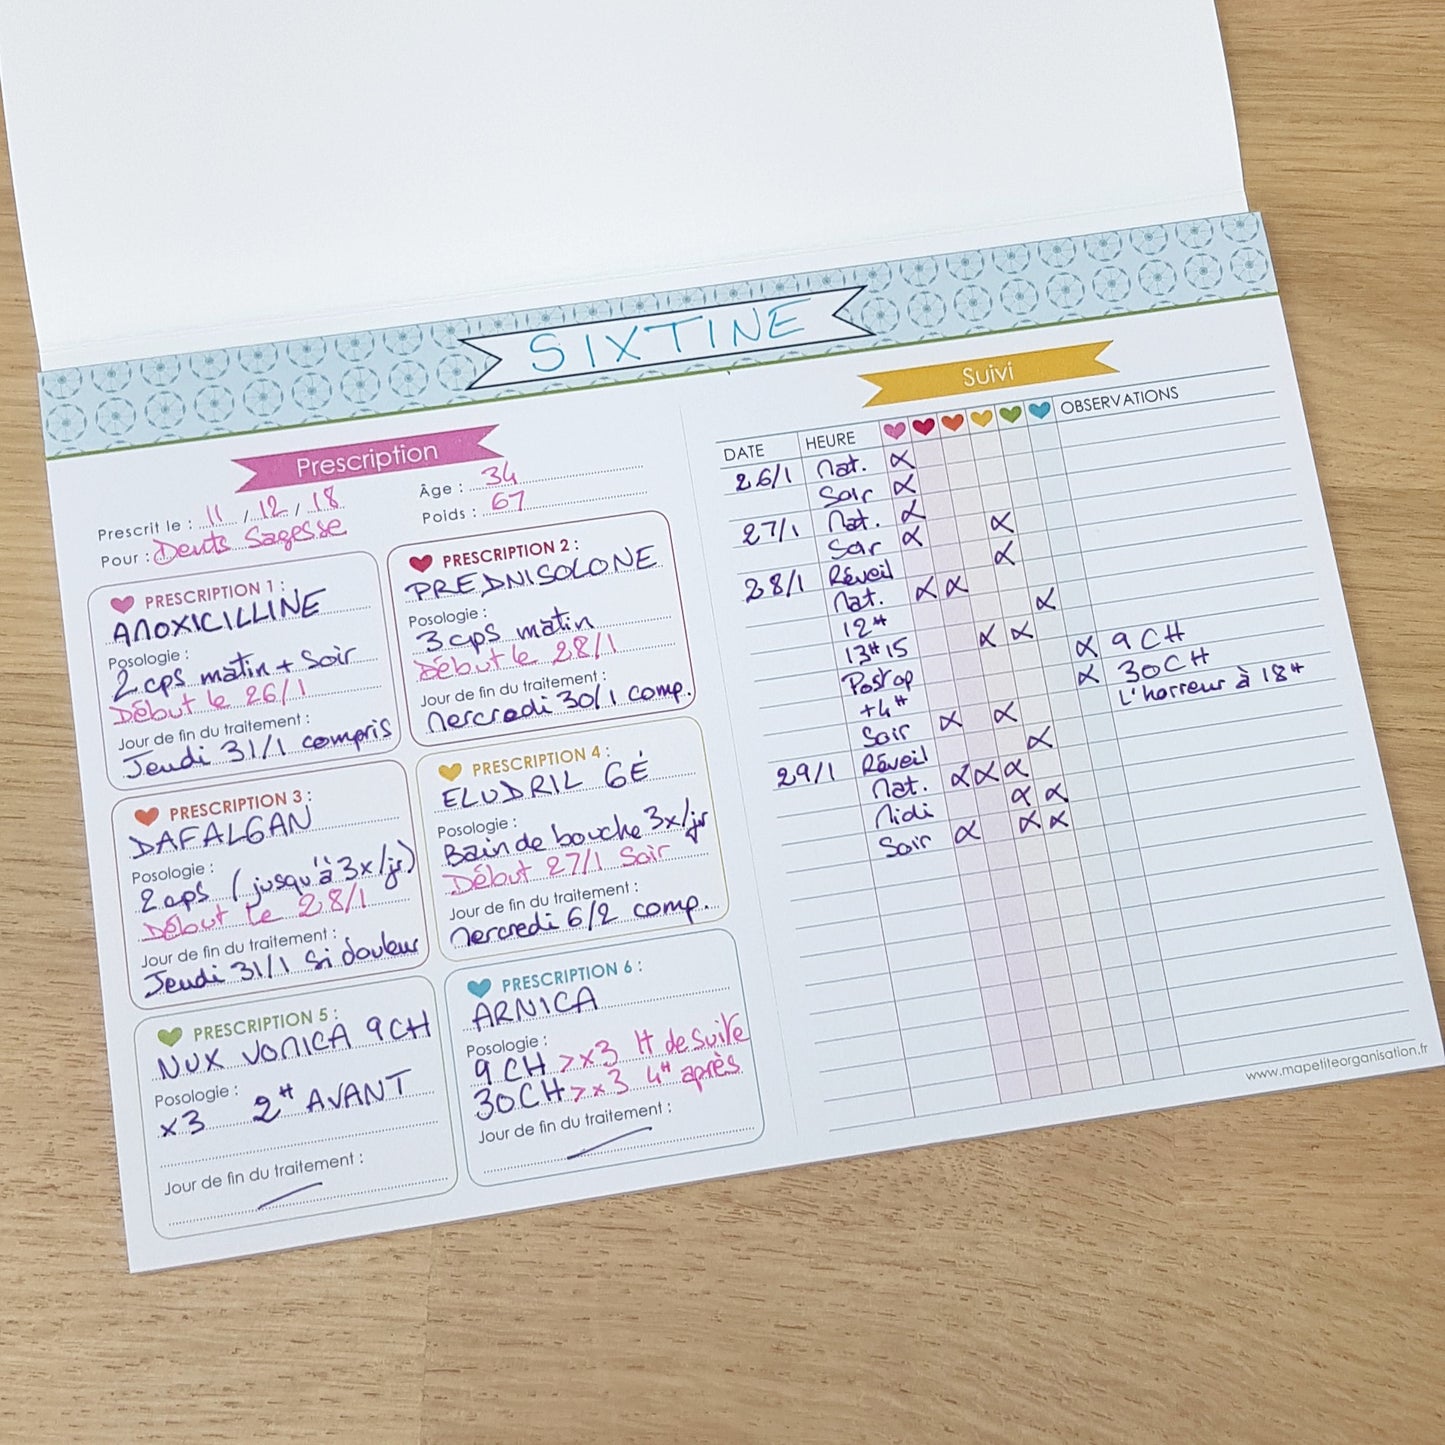 SIXTINE
Prescription
Prescrit le : 11 / 12 / 18
Âge : 34
Pour : Dents Sagesse
Poids : 67
PRESCRIPTION 1 :
AMOXICILLINE
Posologie :
2 cps matin + Soir
Début le 26/1
Jour de fin du traitement :
Jeudi 31/1 compris
PRESCRIPTION 2 :
PREDNISOLONE
Posologie :
3 cps matin
Début le 28/1
Jour de fin du traitement :
Mercredi 30/1 comp.
PRESCRIPTION 3 :
DAFALGAN
Posologie :
2 cps (jusqu'à 3x/jr)
Début le 28/1
Jour de fin du traitement :
Jeudi 31/1 Si douleur
PRESCRIPTION 4 :
ELUDRIL GÉ
Posologie :
Bain de bouche 3x/jr
Début 27/1 Soir
Jour de fin du traitement :
Mercredi 6/2 comp.
PRESCRIPTION 5 :
NUX VOMICA 9CH
Posologie :
x3 2H AVANT
Jour de fin du traitement :
PRESCRIPTION 6 :
ARNICA
Posologie :
9 CH > x3 1H de suite
30CH > x3 4H après
Jour de fin du traitement :
Suivi
DATE HEURE OBSERVATIONS
26/1 Mat. X
Soir X
27/1 Mat. X
Soir X X
28/1 Réveil X
Mat. X X
12H X
13H15 X X
Post op X 9 CH
+4H X 30CH
Soir X X L'horreur à 18H
29/1 Réveil X
Mat. X X X
Midi X X
Soir X X X
www.mapetiteorganisation.fr